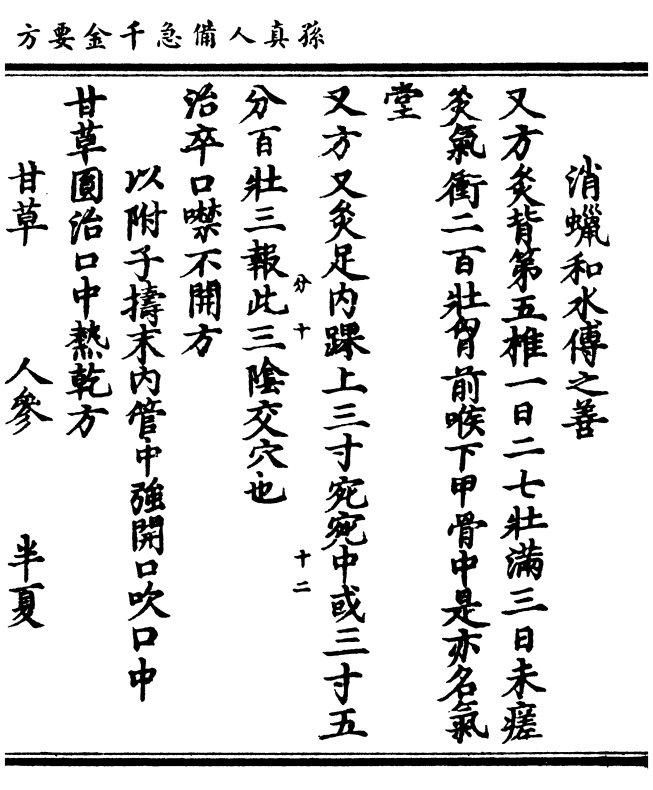 孫真人備急千金要方
消蠟和水傅之善
又方灸背第五椎一日二七壯滿三日未瘥
灸氣衝二百壯胷前喉下甲骨中是亦名氣
堂
又方又灸足内踝上三寸宛宛中或三寸五
分十
十二
分百壯三報此三陰交穴也
治卒口噤不開方
以附子擣末内管中強開口吹口中
甘草圓治口中熱乾方
甘草 人參 半夏